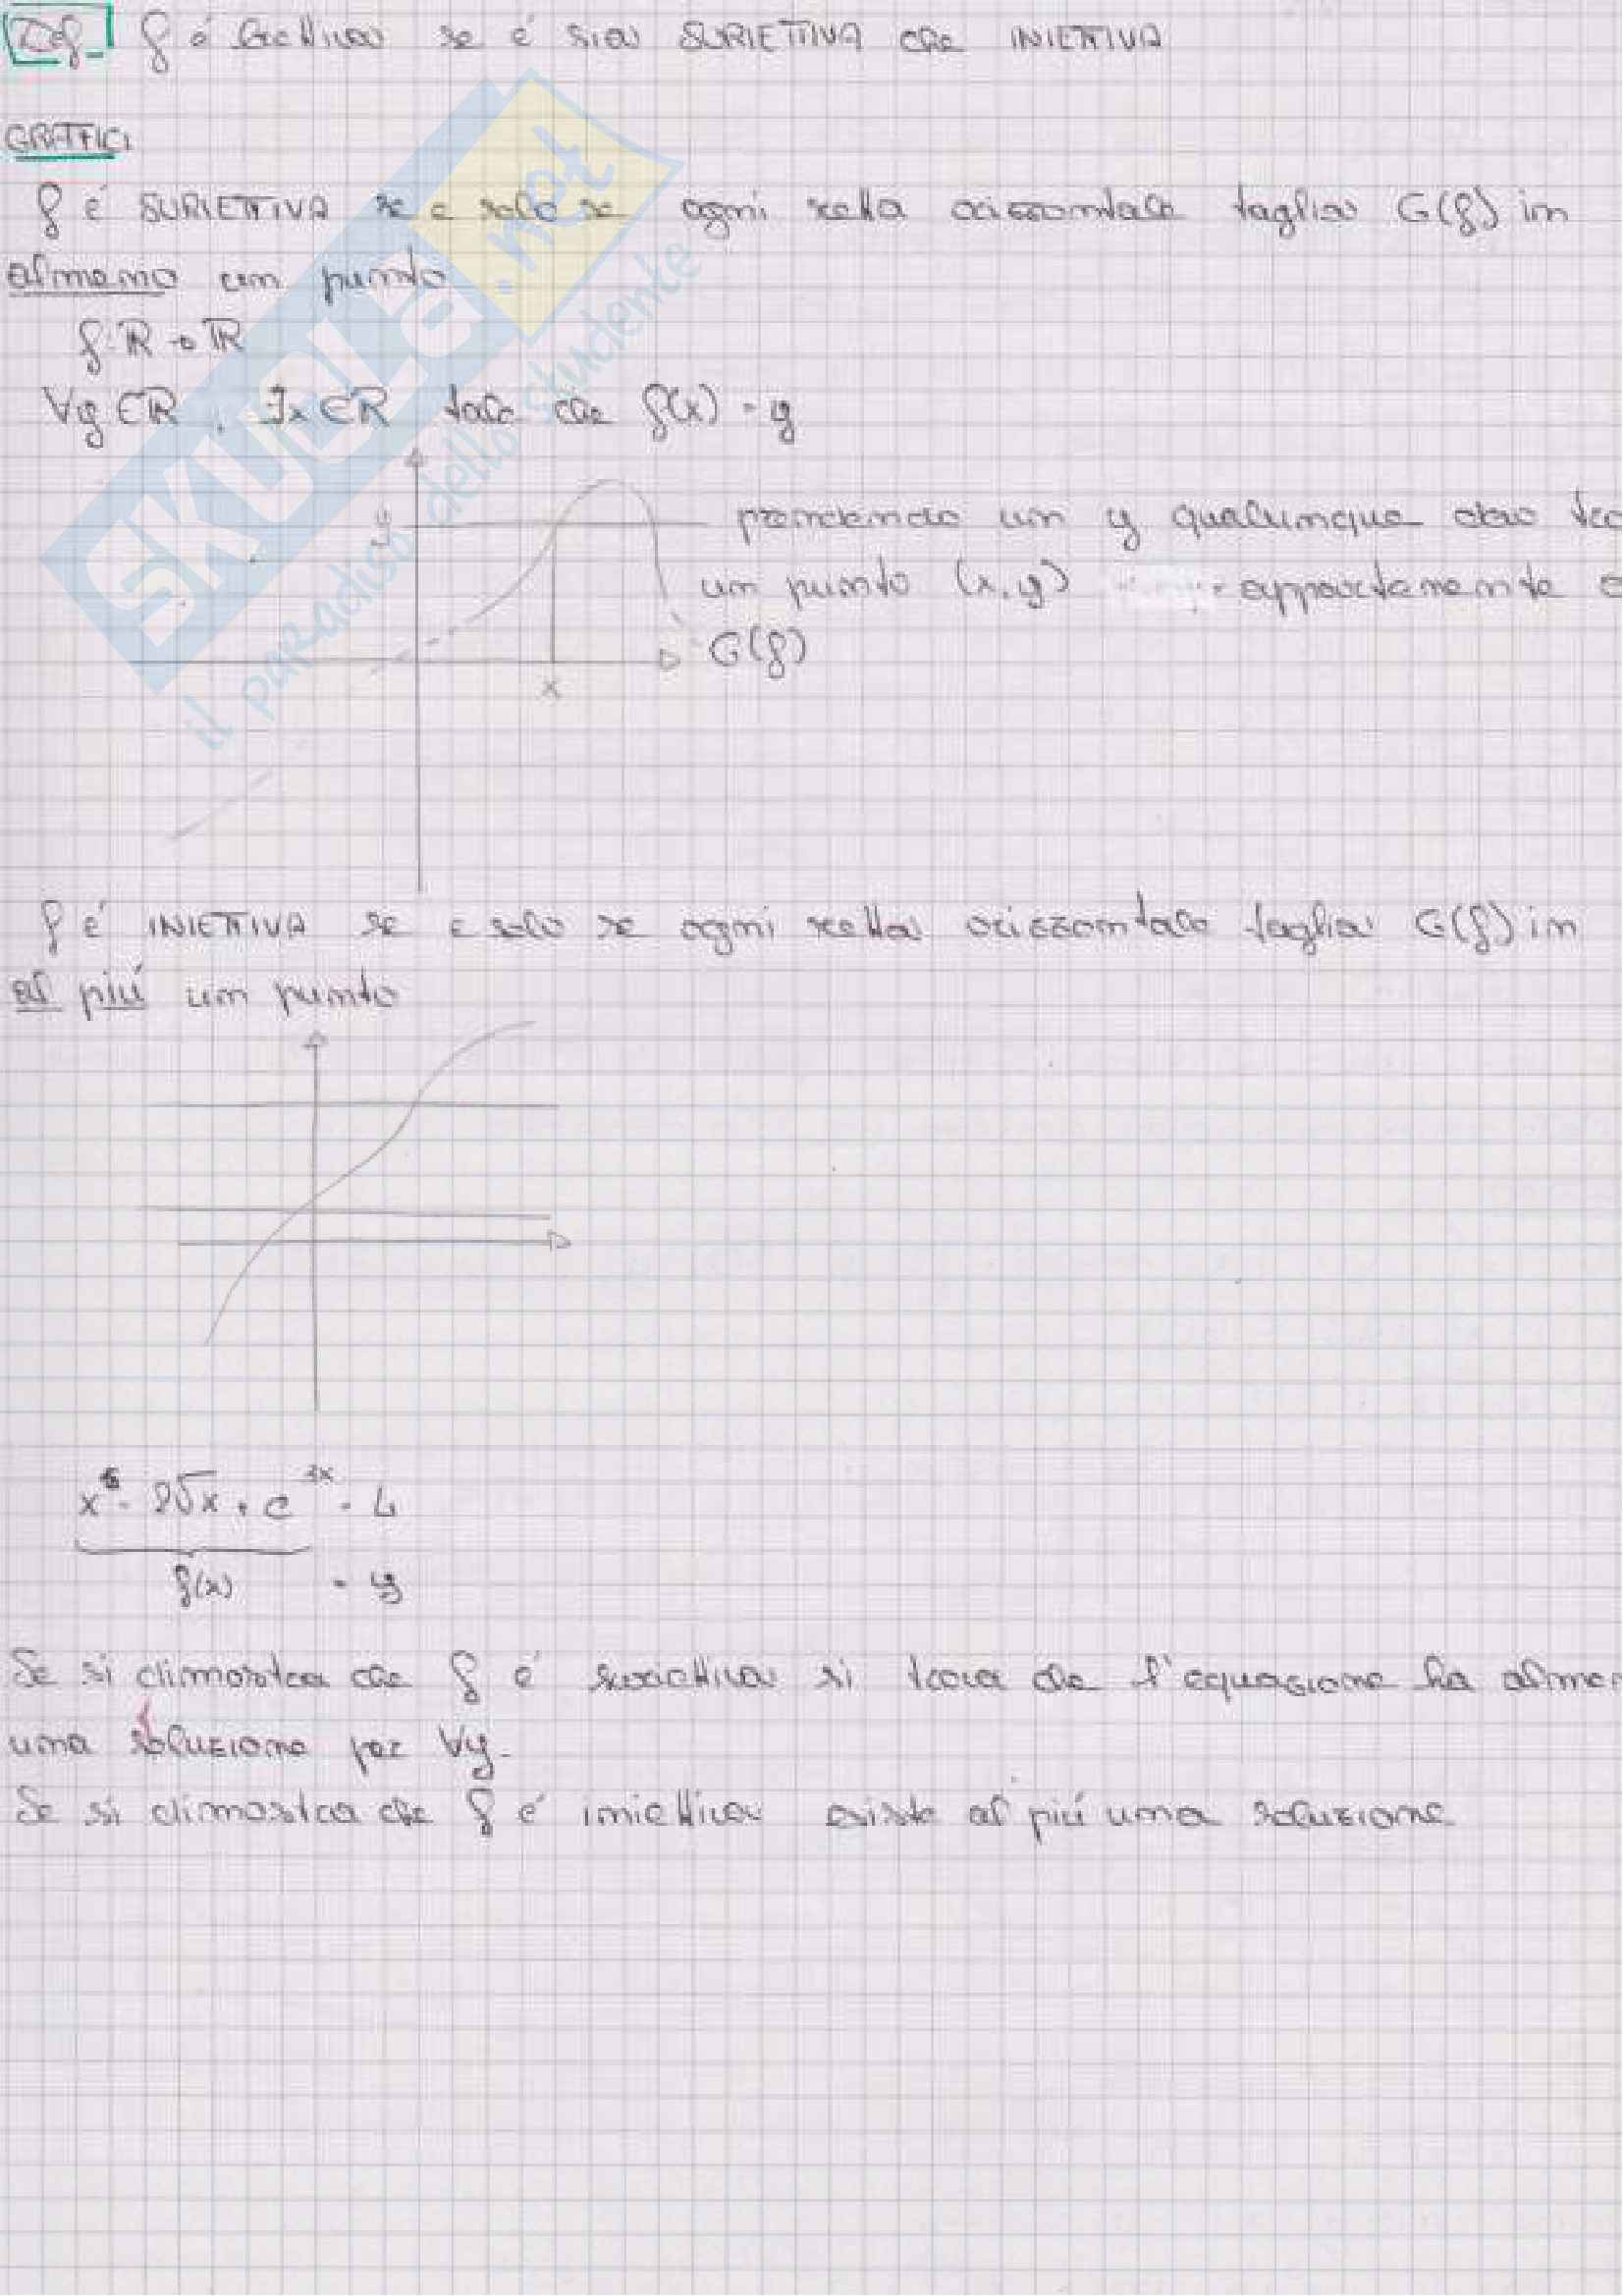 Def f é biettiva se é sia SURIETTIVA che INIETTIVA
GRAFICI
f é SURIETTIVA se e solo se ogni retta orizzontale taglia G(f) in
almeno un punto
f: R → R
∀y ∈ R, ∃x ∈ R tale che f(x) = y
y
prendendo un y qualunque devo
un punto (x, y) appartenente
G(f)
x
f é INIETTIVA se e solo se ogni retta orizzontale taglia G(f) in
al piú un punto
- 2√x + e = 4
f(x) = y
Se si dimostra che f é suriettiva si trova che l'equazione ha almen
una soluzione per ∀y.
Se si dimostra che f é iniettiva esiste al piú una soluzione
SKUOLA.net
il paradiso dello studente